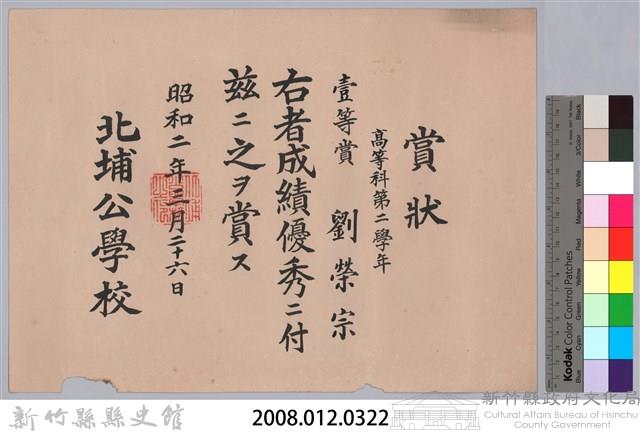 賞狀
高等科第二學年
壹等賞 劉榮宗
右者成績優秀ニ付
茲ニ之ヲ賞ス
昭和二年三月二十六日
北埔公學校
Kodak Color Control Patches
Blue
Cyan
Green
Yellow
Red
Magenta
White
3/Color
Black
新竹縣縣史館
2008.012.0322
新竹縣政府文化局
Cultural Affairs Bureau of Hsinchu
County Government